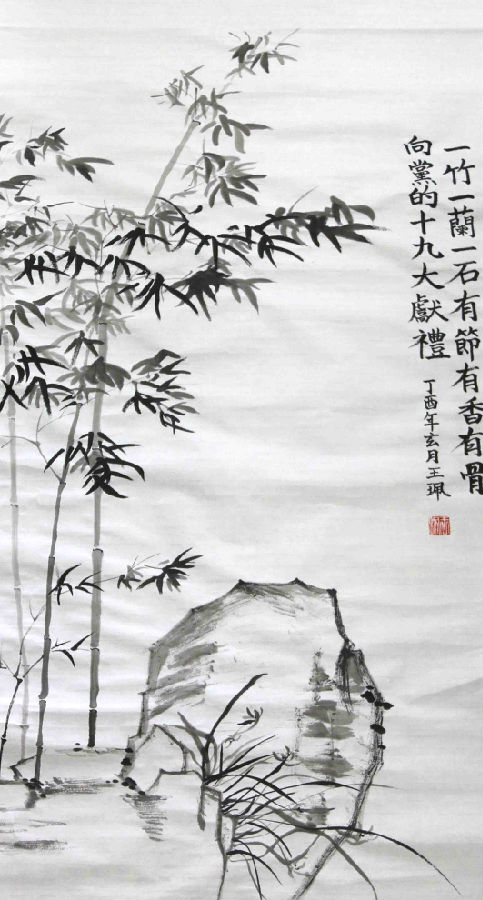 一竹一蘭一石有節有香有骨
向黨的十九大獻禮
丁酉年玄月王珮